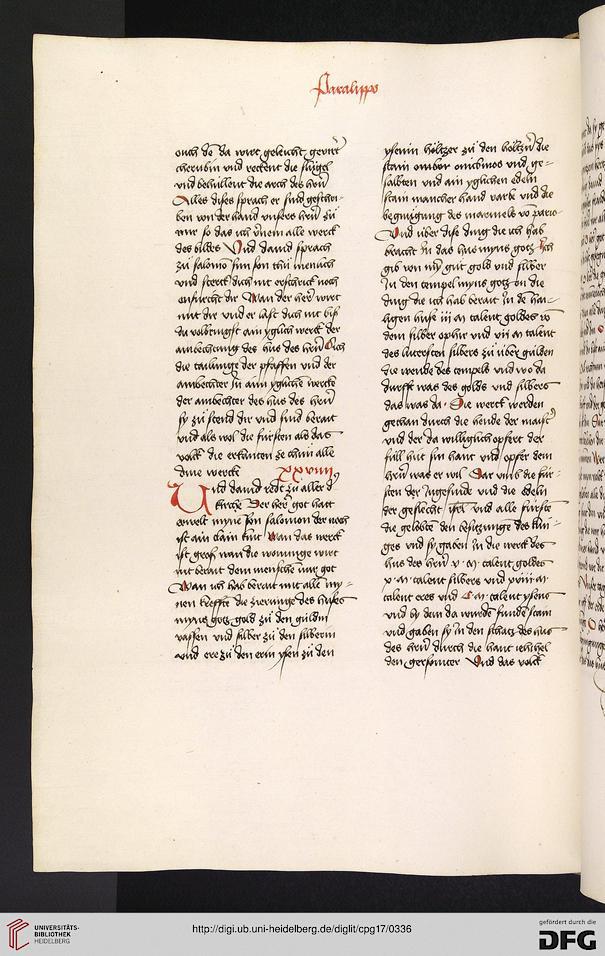 Paralippo
ouch de da wirt geleicht geviert
cherubin vnd reckent die flügel
vnd behüllent die arch des hern
Alles dises sprach er sind geschri-
ben von der hand vnsers hern zü
mir so das ich alle werck
des bildes Vnd dauid sprach
zü salomo sinn son thü menlich
vnd sterck dich nit erschrick noch
enfürcht dir Wan der her wirt
mit dir vnd er last dich nit biß
du volbringst ain yglich werck der
ambechtung des hus des hern Sich
die tailunge der pfaffen vnd der
ambechter in ainn ygliche wercke
der ambechter des hus des hern
sy zü stend dir vnd sind berait
vnd als wol die fürsten als das
volck die erkanten ze thün alle
dine werck xxviiii
Und dauid redt zü aller d
kirche Der her got hatt
erwelt myne son salomon der noch
ist ain clain kint Wan das werck
ist groß wan die wonunge wirt
nit berait dem menschen nur got
Wan ich hab berait mit all my-
nen krefften die zierunge des huses
myns gotz gold zü den guldin
vassen vnd silber zü den silberin
vnd ere zü den erin ysen zü den
ysenin höltzer zü den höltzin die
stain onichinos vnd ge-
salbten vnd ain yglichen edeln
stain mancher hand varb vnd die
des marmels vo pario
Vnd über dise ding die ich hab
bracht in das hus myns gotz Ich
gib von mym güt gold vnd silber
in den tempel myns gotz on die
ding die ich hab berait in de hai-
ligen huse iii m talent goldes vo
dem silber ophir vnd vii m talent
des lutersten silbers zü über gulden
die wende des tempels vnd wo da
durfft was des golds vnd silbers
das was da Die werck werden
gethan durch die hende der maister
vnd der da williglich opfert der
füll hüt sin hant vnd opfer dem
hern was er wil Dar umb die für-
sten der ingesinde vnd die edeln
der geslecht israhel vnd alle fürste
die gelobte den besitzunge des kün-
ges vnd sy gaben in die werck des
hus des hern v m talent goldes
x m talent silbers vnd xviii m
talent eres vnd C m talent ysens
vnd by dem da wurde funde stain
vnd gaben sy in den schatz des hus
des hern durch die hant iehihel
den gersoniter Vnd das volck
UNIVERSITÄTS-
BIBLIOTHEK
HEIDELBERG
http://digi.ub.uni-heidelberg.de/diglit/cpg17/0336
gefördert durch die
DFG